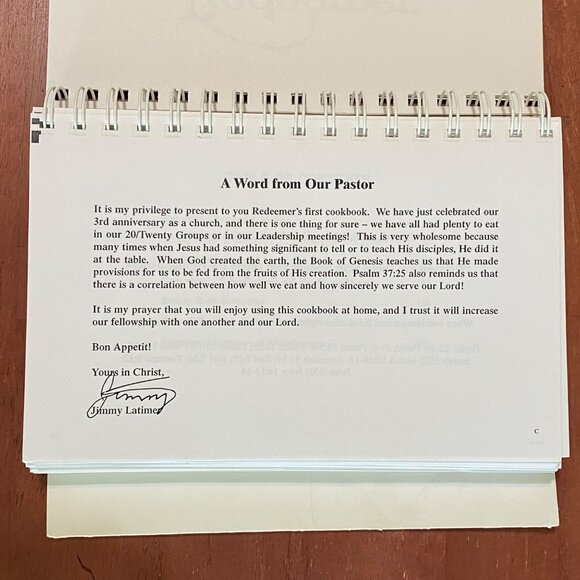 A Word from Our Pastor
It is my privilege to present to you Redeemer's first cookbook. We have just celebrated our
3rd anniversary as a church, and there is one thing for sure – we have all had plenty to eat
in our 20/Twenty Groups or in our Leadership meetings! This is very wholesome because
many times when Jesus had something significant to tell or to teach His disciples, He did it
at the table. When God created the earth, the Book of Genesis teaches us that He made
provisions for us to be fed from the fruits of His creation. Psalm 37:25 also reminds us that
there is a correlation between how well we eat and how sincerely we serve our Lord!
It is my prayer that you will enjoy using this cookbook at home, and I trust it will increase
our fellowship with one another and our Lord.
Bon Appetit!
Yours in Christ,
Jimmy
Jimmy Latimer
C